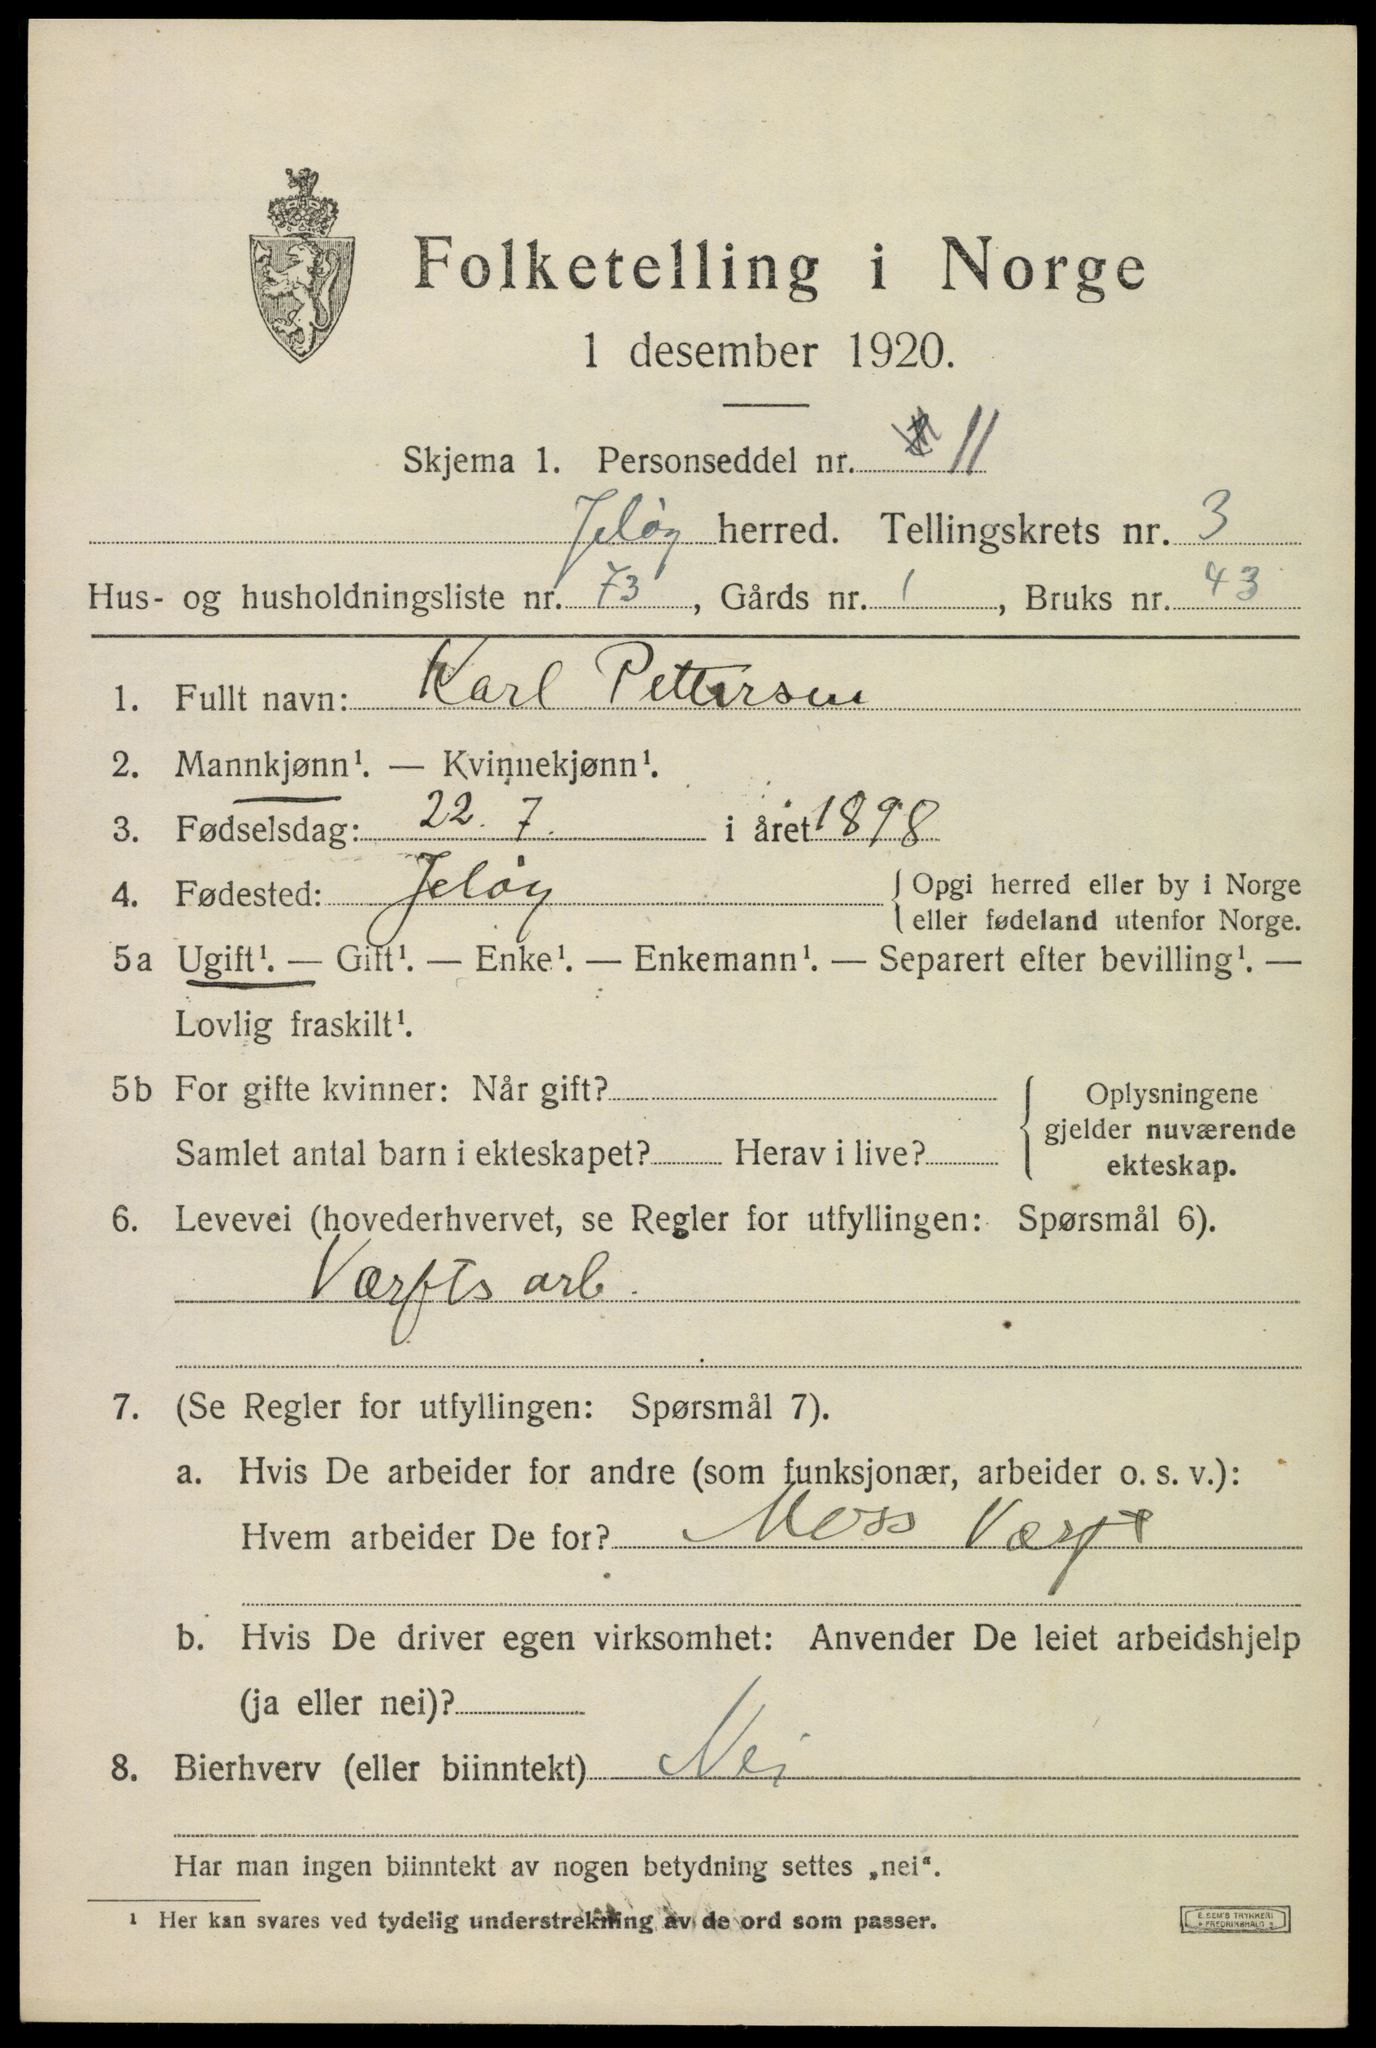 Folketelling i Norge
1 desember 1920.
Skjema 1. Personseddel nr. 11
Jeløy herred. Tellingskrets nr. 3
Hus- og husholdningsliste nr. 73, Gårds nr. 1, Bruks nr. 43
1. Fullt navn: Karl Pettersen
2. Mannkjønn¹. — Kvinnekjønn¹.
3. Fødselsdag: 22. 7. i året 1898
4. Fødested: Jeløy { Opgi herred eller by i Norge
eller fødeland utenfor Norge.
5a Ugift¹. — Gift¹. — Enke¹. — Enkemann¹. — Separert efter bevilling¹. —
Lovlig fraskilt¹.
5b For gifte kvinner: Når gift? { Oplysningene
gjelder nuværende
Samlet antal barn i ekteskapet? Herav i live?
ekteskap.
6. Levevei (hovederhvervet, se Regler for utfyllingen: Spørsmål 6).
Værfts arb.
7. (Se Regler for utfyllingen: Spørsmål 7).
a. Hvis De arbeider for andre (som funksjonær, arbeider o. s. v.):
Hvem arbeider De for? Moss Værft
b. Hvis De driver egen virksomhet: Anvender De leiet arbeidshjelp
(ja eller nei)?
8. Bierhverv (eller biinntekt) Nei
Har man ingen biinntekt av nogen betydning settes „nei“.
¹ Her kan svares ved tydelig understrekning av de ord som passer.
E. SEM'S TRYKKERI
FREDRIKSHALD